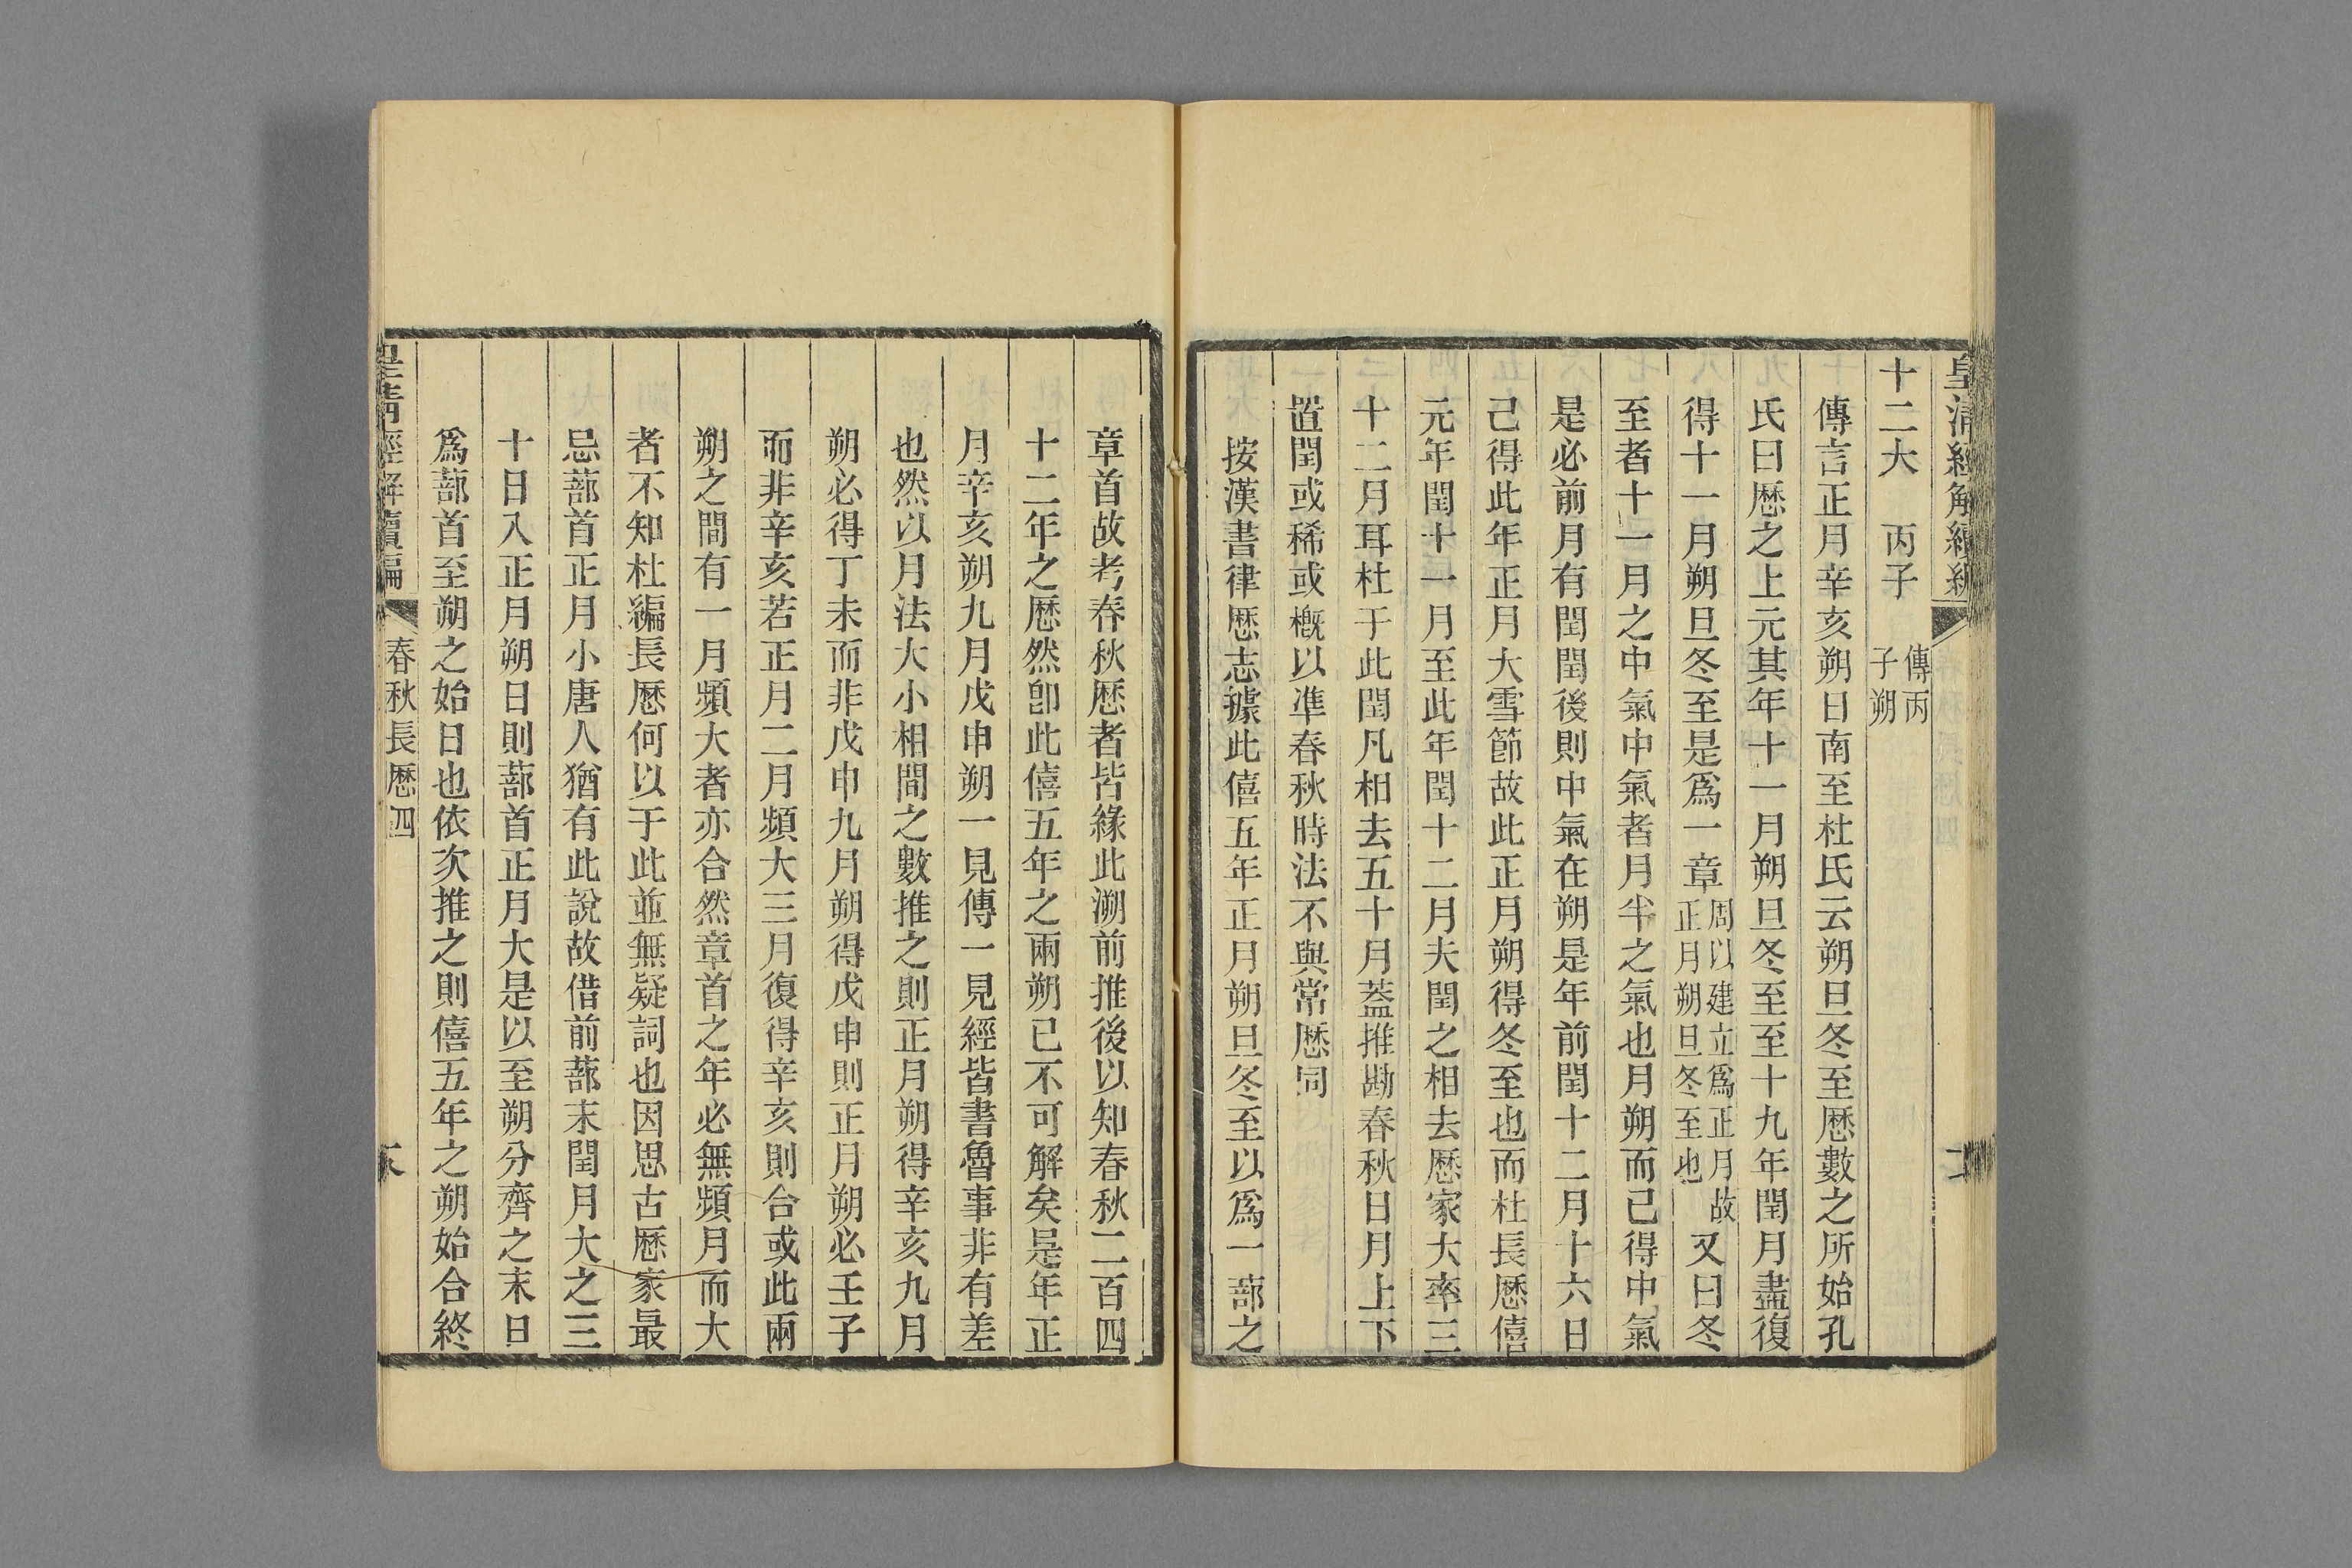 皇清經解續編
十二大　丙子　傳丙子朔
傳言正月辛亥朔日南至杜氏云朔旦冬至厯數之所始孔
氏曰厯之上元其年十一月朔旦冬至至十九年閏月盡復
得十一月朔旦冬至是爲一章周以建立爲正月故正月朔旦冬至也又曰冬
至者十一月之中氣中氣者月半之氣也月朔而已得中氣
是必前月有閏閏後則中氣在朔是年前閏十二月十六日
己得此年正月大雪節故此正月朔得冬至也而杜長厯僖
元年閏十一月至此年閏十二月夫閏之相去厯家大率三
十二月耳杜于此閏凡相去五十月蓋推勘春秋日月上下
置閏或稀或概以準春秋時法不與常厯同
按漢書律厯志據此僖五年正月朔旦冬至以爲一蔀之
章首故考春秋厯者皆緣此溯前推後以知春秋二百四
十二年之厯然卽此僖五年之兩朔已不可解矣是年正
月辛亥朔九月戊申朔一見傳一見經皆書魯事非有差
也然以月法大小相間之數推之則正月朔得辛亥九月
朔必得丁未而非戊申九月朔得戊申則正月朔必壬子
而非辛亥若正月二月頻大三月復得辛亥則合或此兩
朔之間有一月頻大者亦合然章首之年必無頻月而大
者不知杜編長厯何以于此並無疑詞也因思古厯家最
忌蔀首正月小唐人猶有此說故借前蔀末閏月大之三
十日入正月朔日則蔀首正月大是以至朔分齊之末日
爲蔀首至朔之始日也依次推之則僖五年之朔始合終
皇清經解續編　春秋長厯四